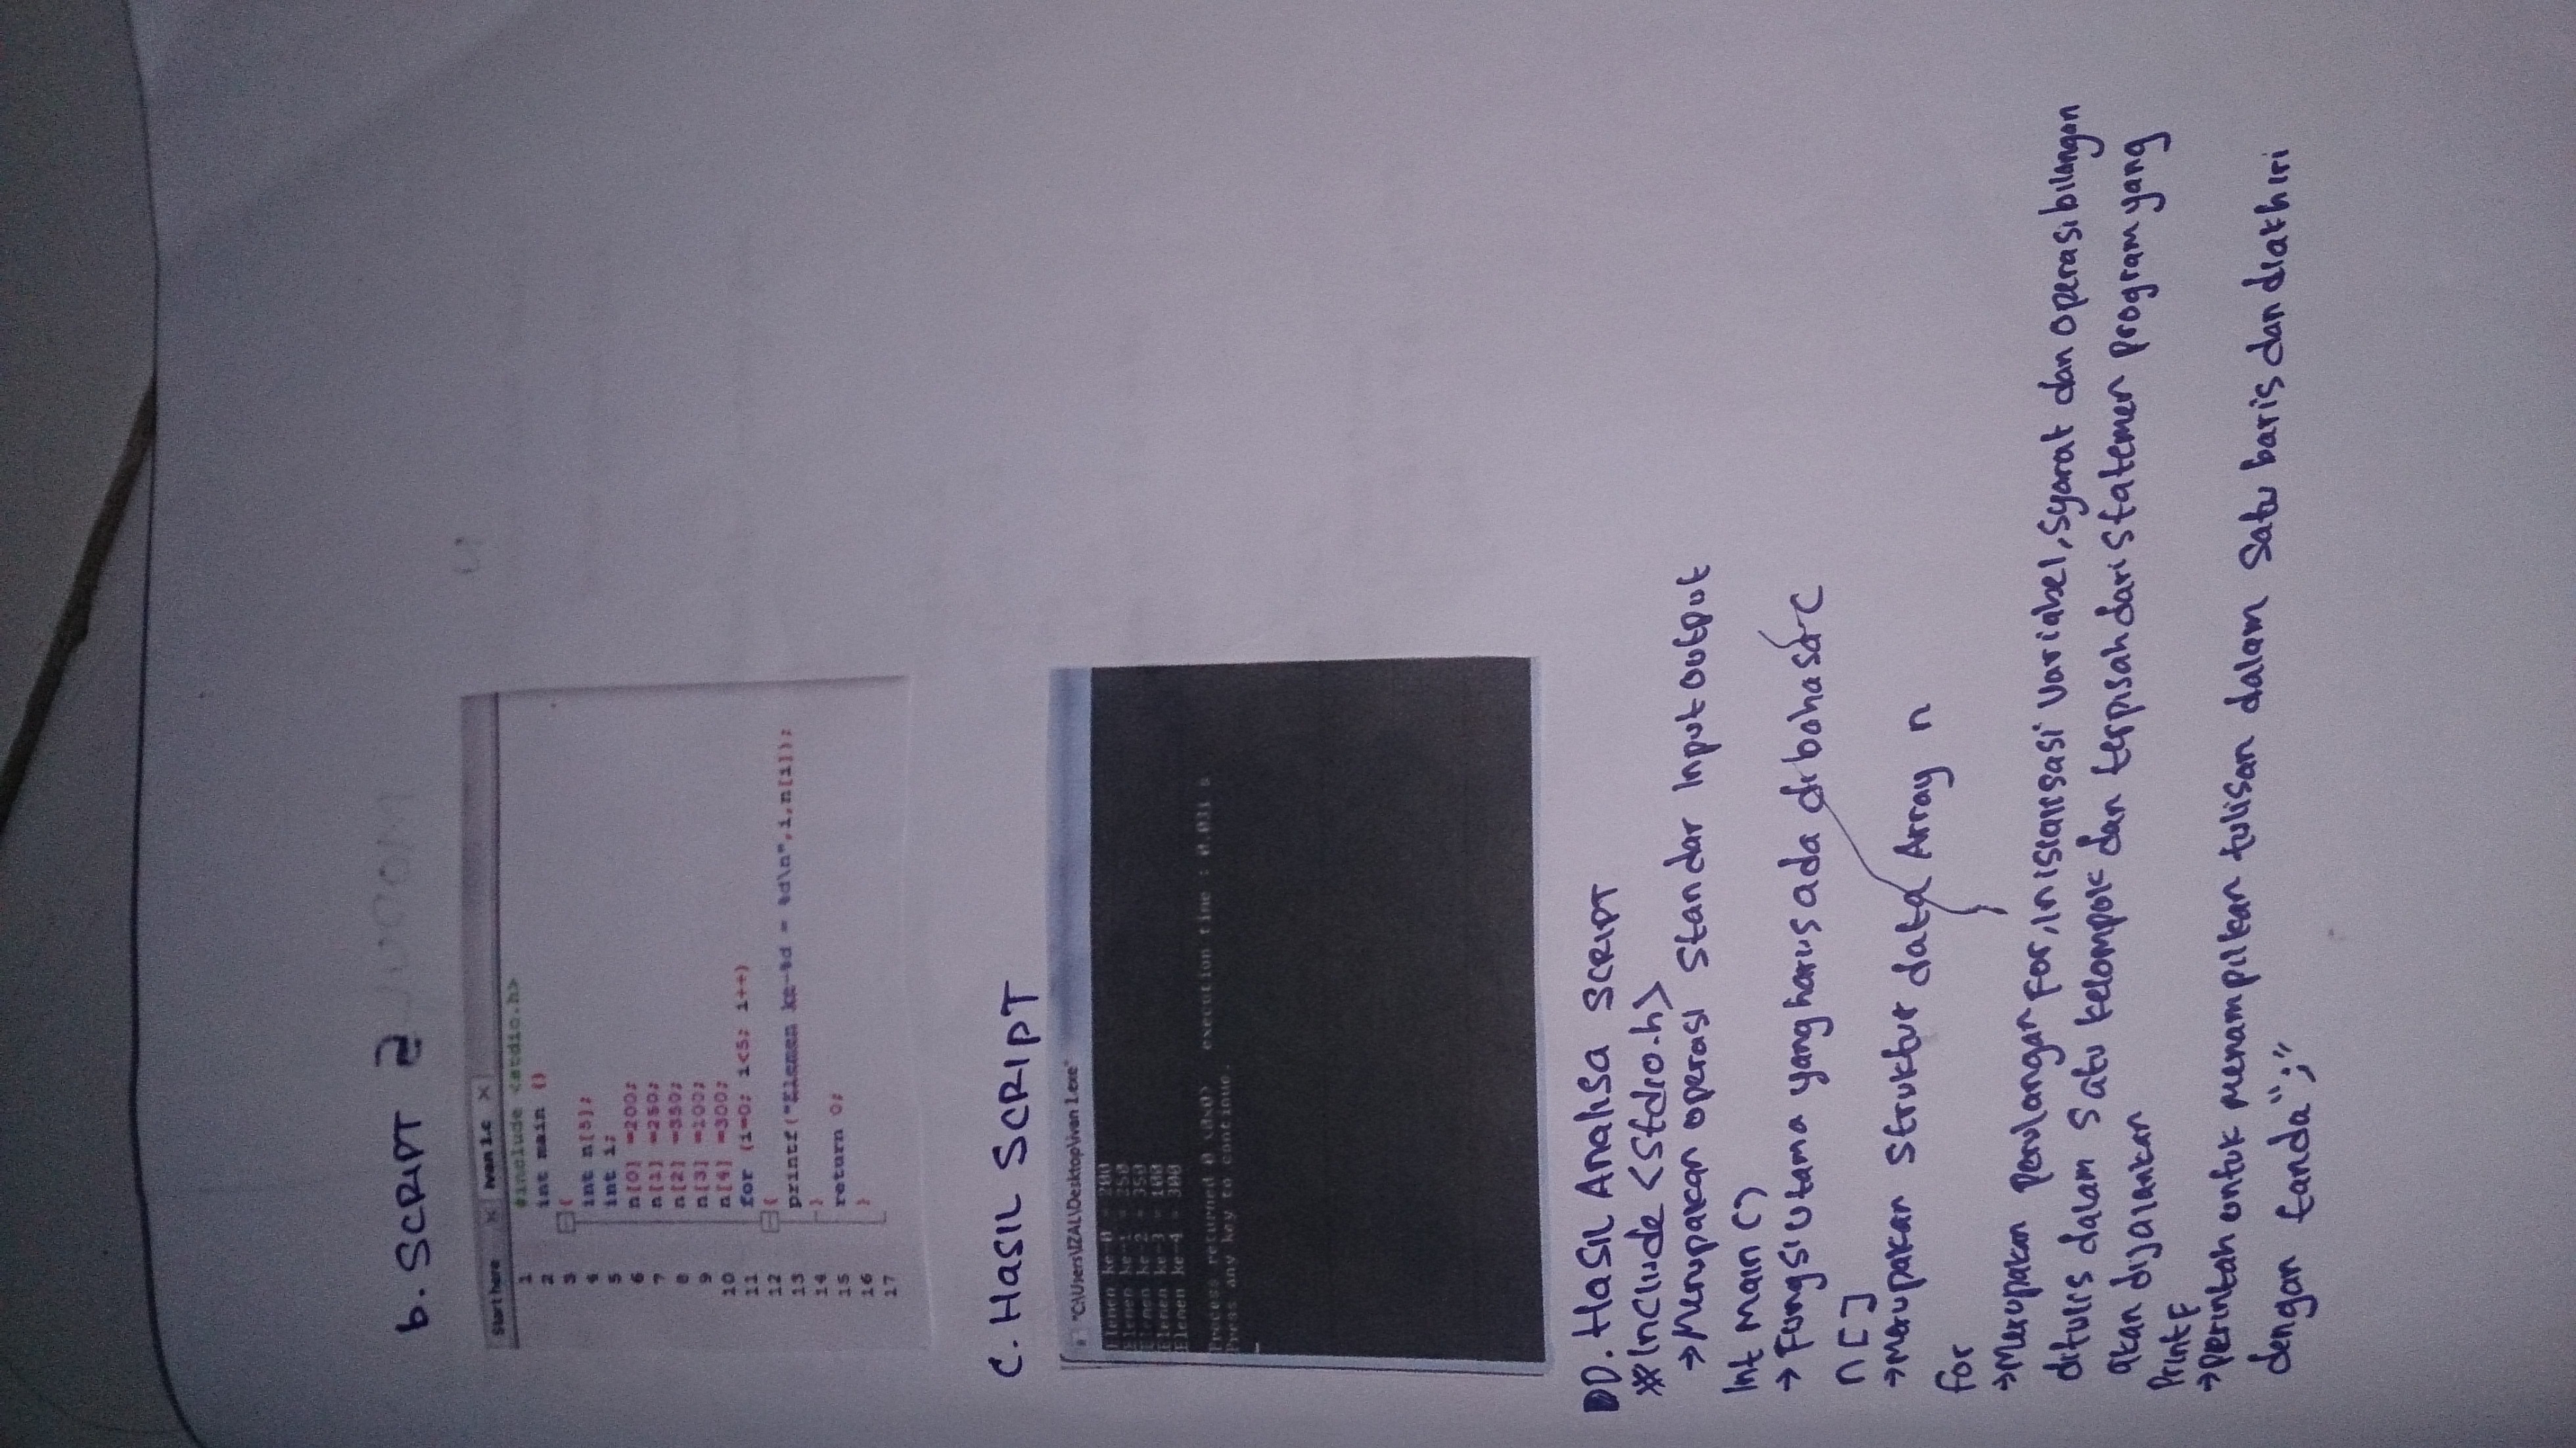 b. SCRIPT 2
Start here × ivan 1.c ×
1 #include <stdio.h>
2 int main ()
3 {
4 int n[5];
5 int i;
6 n[0] =200;
7 n[1] =250;
8 n[2] =350;
9 n[3] =100;
10 n[4] =300;
11 for (i=0; i<5; i++)
12 {
13 printf("Elemen ke-%d = %d\n",i,n[i]);
14 }
15 return 0;
16 }
17
C. HASIL SCRIPT
"C:\Users\IZAL\Desktop\ivan 1.exe"
Elemen ke-0 = 200
Elemen ke-1 = 250
Elemen ke-2 = 350
Elemen ke-3 = 100
Elemen ke-4 = 300
Process returned 0 (0x0) execution time : 0.031 s
Press any key to continue.
D. Hasil Analisa SCRIPT
#Include <stdio.h>
→ Merupakan operasi standar Input output
Int main ()
→ Fungsi utama yang harus ada di bahasa C
n []
→ Merupakan Struktur data Array n
for
→ Merupakan perulangan For, inisialisasi Variabel, syarat dan operasi bilangan
ditulis dalam satu kelompok dan terpisah dari statemen program yang
akan dijalankan
Printf
→ perintah untuk menampilkan tulisan dalam satu baris dan diakhiri
dengan tanda ";"